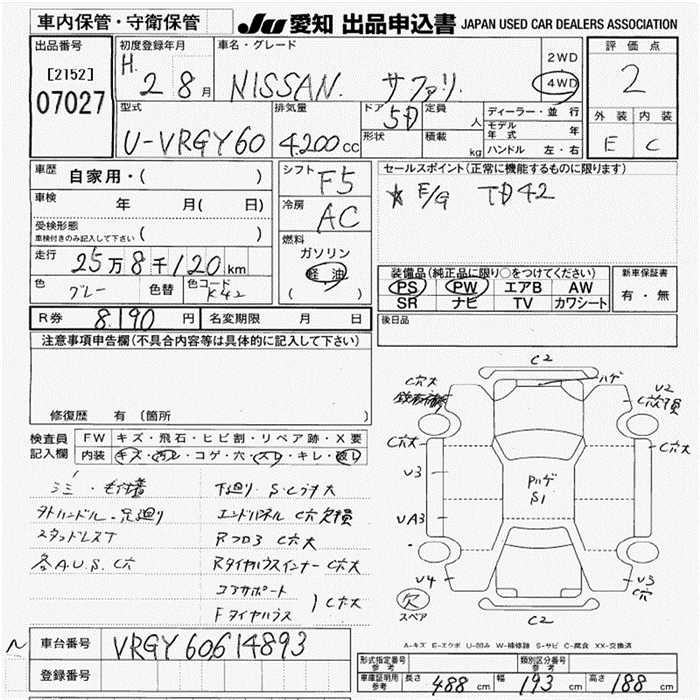 車内保管・守衛保管
JU 愛知 出品申込書 JAPAN USED CAR DEALERS ASSOCIATION
出品番号
[2152]
07027
初度登録年月
H. 2 8月
車名・グレード
NISSAN. サファリ.
2WD
4WD
評価点
2
外装 内装
E C
型式
U-VRGY60
排気量
4200cc
ドア 5D
形状
定員 人
積載 kg
ディーラー・並行
モデル年式 年
ハンドル 左・右
車歴 自家用・( )
車検 年 月( 日)
受検形態
車検付きのみ記入して下さい ( )
走行 25万8千120km
色 グレー 色替 色コード K42
シフト F5
冷房 AC
燃料
ガソリン
軽油
( )
セールスポイント(正常に機能するものに限ります)
☆ E/G TD42
装備品(純正品に限り○をつけてください)
PS PW エアB AW
SR ナビ TV カワシート
新車保証書
有・無
R券 8,190円 名変期限 月 日
後日品
注意事項申告欄(不具合内容等は具体的に記入して下さい)
修復歴 有〔箇所 〕
検査員記入欄
FW キズ・飛石・ヒビ割・リペア跡・X要
内装 キズ・汚レ・コゲ・穴・スレ・キレ・破レ
下廻り S.C
外ハンドル・足廻り
エンドパネル C穴欠損
スタッドレスT
Rフロア C穴大
各A.U.S. C穴
RタイヤハウスインナーC穴大
コアサポート
Fタイヤハウス
C穴大
C2
ハゲ
C穴大
U2
C穴欠損
C穴大
C穴大
U3
Pハゲ
S1
UA3
U4
U3
C穴
欠
スペア
C2
車台番号 VRGY60614893
登録番号
A-キズ E-エクボ U-凹み W-補修跡 S-サビ C-腐食 XX-交換済
形式指定番号 参考
類別区分番号 参考
車庫証明用参考 長さ 488cm 幅 193cm 高さ 188cm